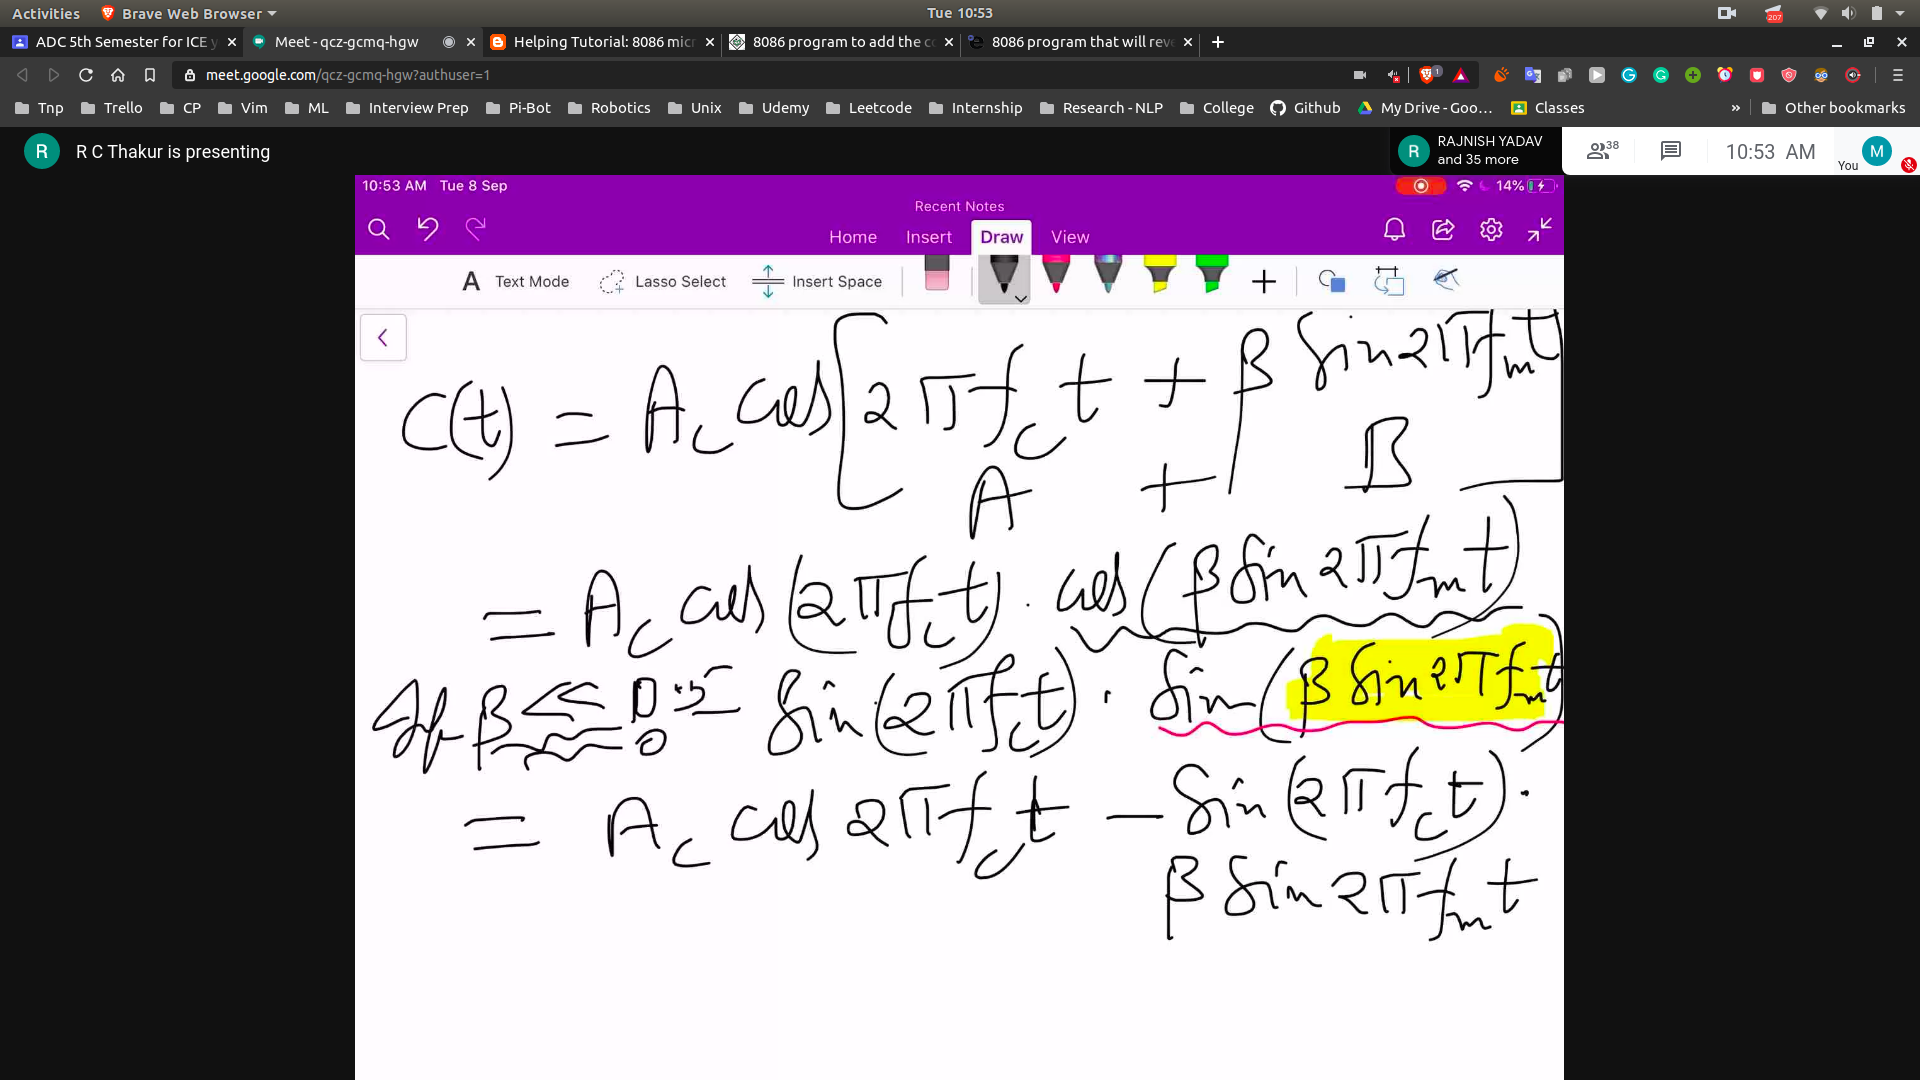 Activities Brave Web Browser Tue 10:53 207
ADC 5th Semester for ICE y Meet - qcz-gcmq-hgw Helping Tutorial: 8086 micr 8086 program to add the co 8086 program that will reve
meet.google.com/qcz-gcmq-hgw?authuser=1 1
Tnp Trello CP Vim ML Interview Prep Pi-Bot Robotics Unix Udemy Leetcode Internship Research - NLP College Github My Drive - Goo... Classes » Other bookmarks
R R C Thakur is presenting R RAJNISH YADAV and 35 more 38 10:53 AM You M
10:53 AM Tue 8 Sep 14%
Recent Notes
Home Insert Draw View
A Text Mode Lasso Select Insert Space
C(t) = A_c cos[2πf_c t + β sin 2πf_m t]
A + B
= A_c cos(2πf_c t) . cos(β sin 2πf_m t)
If β << 0.5 - sin(2πf_c t) . sin(β sin 2πf_m t)
0
= A_c cos 2πf_c t - sin(2πf_c t) .
β sin 2πf_m t